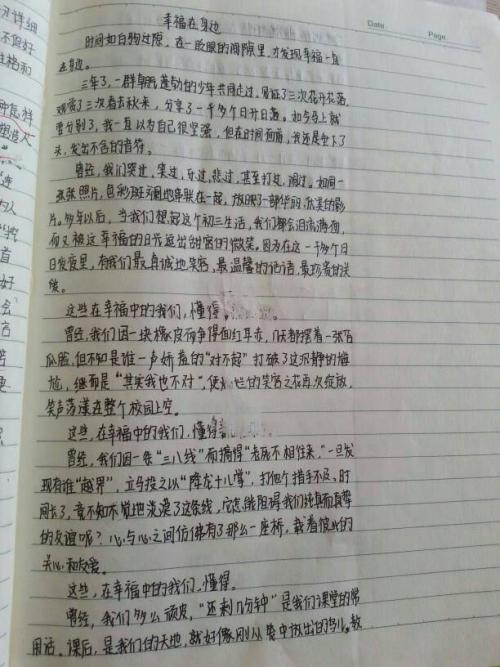 Date
Page
幸福在身边
时间如白驹过隙，在一眨眼的间隙里，才发现幸福一直
在身边。
三年了，一群朝气蓬勃的少年共同走过，见证了三次花开花落，
观赏了三次春去秋来，分享了一千多个日升日落。如今马上就
要分别了，我一直以为自己很坚强，但在时间面前，我还是垂下了
头，发出不舍的音符。
曾经，我们哭过，笑过，乐过，悲过，甚至打过，闹过。如同一
张张照片，色彩斑斓地串联在一起，放映了一部华丽，亦美的影
片。多年以后，当我们想起这个初三生活，我们都会泪流满面，
而又被这幸福的日光逗出甜蜜的微笑。因为在这一千多个日
日夜夜里，有我们最真诚地笑容，最温馨的话语，最珍贵的笑
这些在幸福中的我们，懂得
曾经，我们因一块橡皮而争得面红耳赤，几天都摆着一张苦
瓜脸，但不知是谁一声娇羞的“对不起”打破了这沉静的尴
尬，继而是“其实我也不对”，使 烂的笑容之花再次绽放，
笑声荡漾在整个校园上空。
这些，在幸福中的我们，懂得
曾经，我们因一条“三八线”而搞得“老死不相往来”，一旦发
现有谁“越界”，立马投之以“降龙十八掌”，打他个措手不及。时
间长了，竟不知不觉地淡漠了这条线，它怎能阻碍我们纯真而真挚
的友谊呢？心与心之间仿佛有了那么一座桥，载着彼此的
关心和友爱。
这些，在幸福中的我们，懂得。
曾经，我们多么顽皮，“还剩几分钟”是我们课堂的常
用语。课后，是我们的天地，就好像刚从 中放出的鸟儿。教